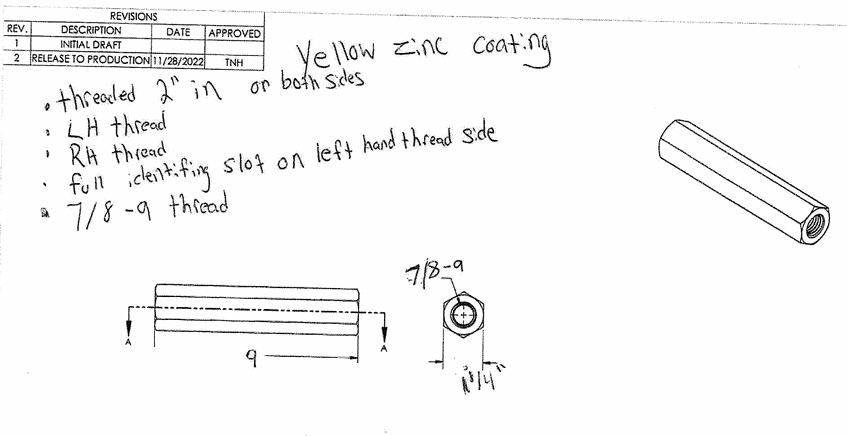 REVISIONS
REV. DESCRIPTION DATE APPROVED
1 INITIAL DRAFT
2 RELEASE TO PRODUCTION 11/28/2022 TNH
Yellow zinc coating
• threaded 2" in on both sides
• LH thread
• RH thread
• full identifing slot on left hand thread side
• 7/8-9 thread
7/8-9
A A
9
1/4"